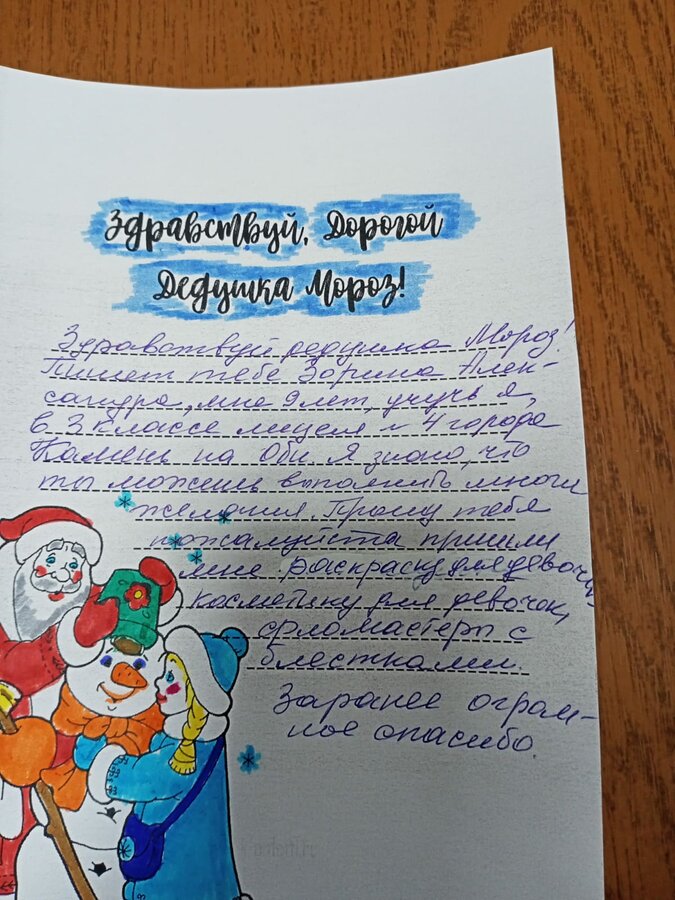 Здравствуй, Дорогой
Дедушка Мороз!
Здравствуй дедушка Мороз!
Пишет тебе Зорина Алек-
сандра, мне 9 лет, учусь я,
в 3 классе лицея № 4 города
Камень на Оби. Я знаю, что
ты можешь выполнить многи
желания. Прошу тебя
пожалуйста пришли
мне раскраску для девочк,
косметику для девочек,
фломастеры с
блестками.
Заранее огром-
ное спасибо